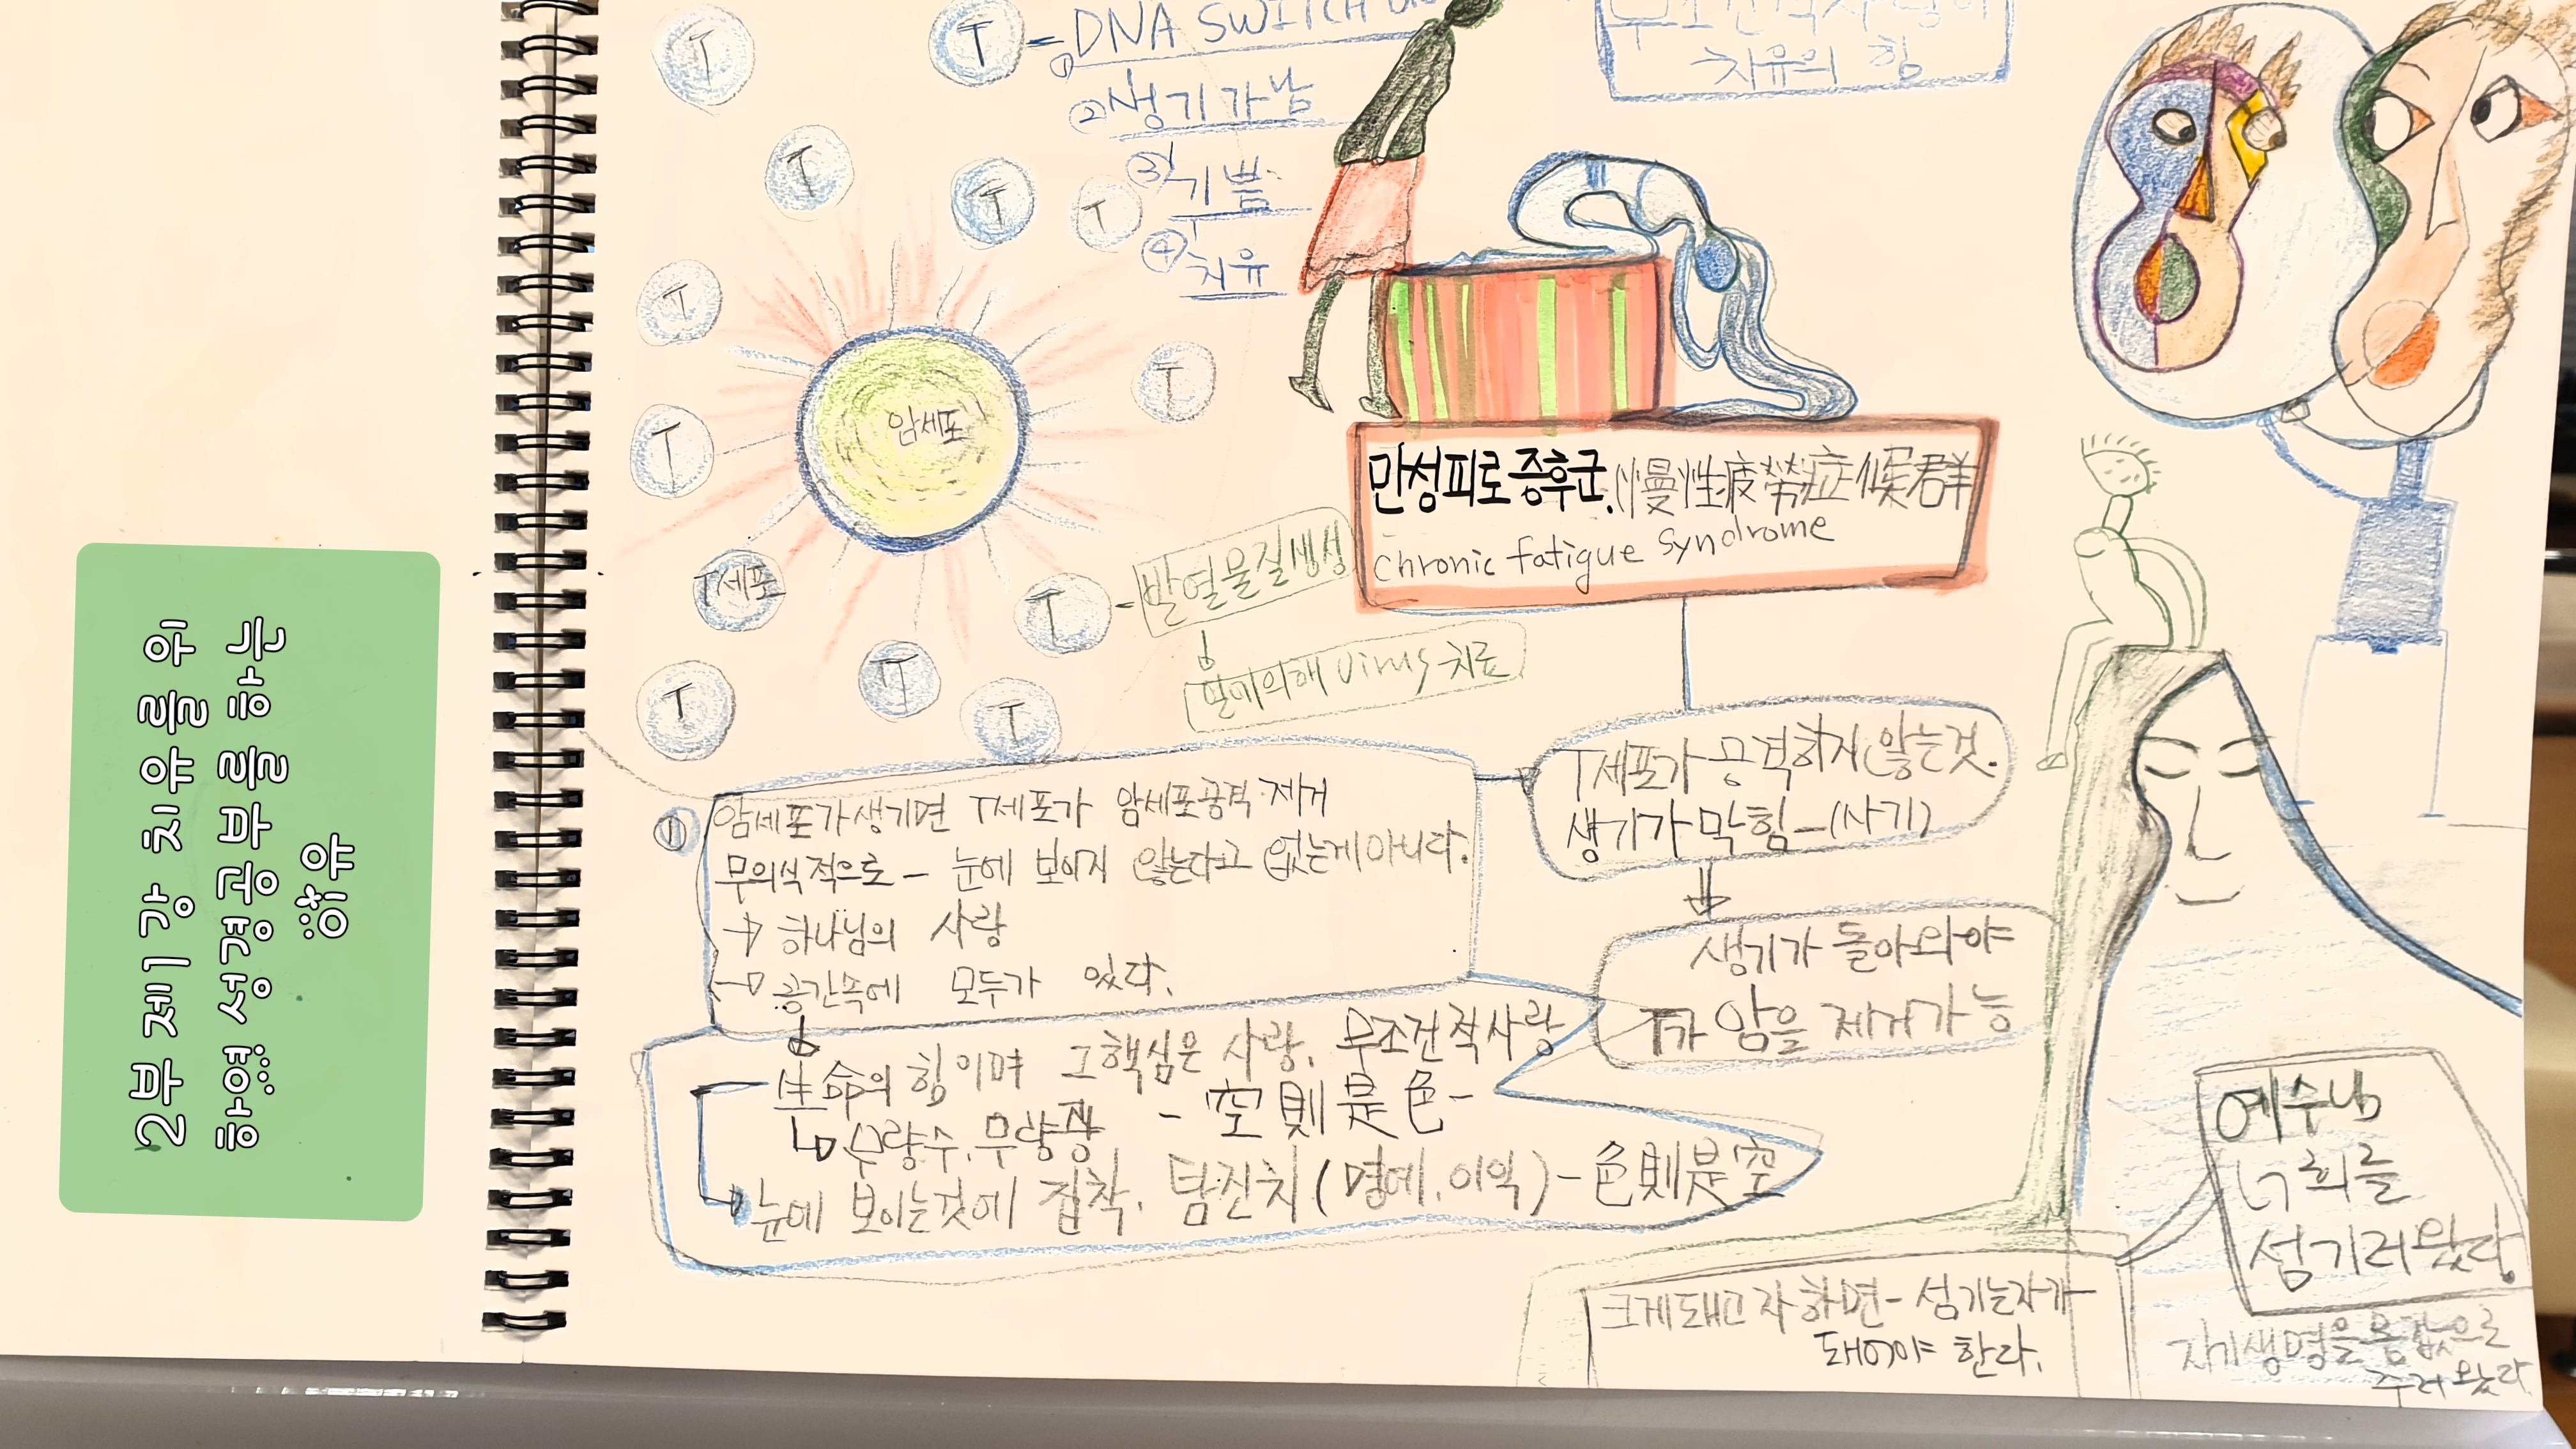 2부 제1강 치유를 위
하여 성경공부를 하는
이유
T
T
DNA SWITCH
① 
② 생기가남
③ 기쁨
④ 치유
무조건적사랑이
치유의 힘
T
T
T
T
T
T
암세포
T세포
T
T
T
T
발열물질생성
열에의해 virus 치료
만성피로증후군.慢性疲勞症候群
chronic fatigue syndrome
T세포가 공격하지 않는것.
생기가 막힘-(사기)
생기가 돌아와야
T가 암을 제거가능
① 암세포가생기면 T세포가 암세포공격·제거
무의식적으로 - 눈에 보이지 않는다고 없는게아니다.
→ 하나님의 사랑
→ 공간속에 모두가 있다.
生命의 힘이며 그핵심은 사랑. 무조건적사랑
무량수.무량광 - 空則是色-
눈에 보이는것에 집착. 탐진치(명예.이익)-色則是空
예수님
너희를
섬기러왔다
크게돼고자하면-섬기는자가
돼어야 한다.
자기생명을 몸값으로
주러왔다